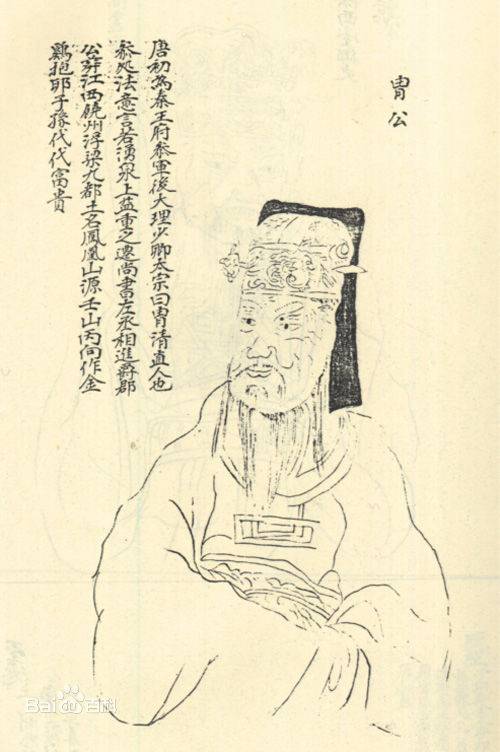 胄公
唐初為秦王府參軍後大理少卿太宗曰胄清直人也
參处法意言若湧泉上益重之遷尚書左丞相進爵郡
公葬江西饒州浮梁九都土名鳳凰山源壬山丙向作金
鷄抱卵子孫代代富貴
Bai百科